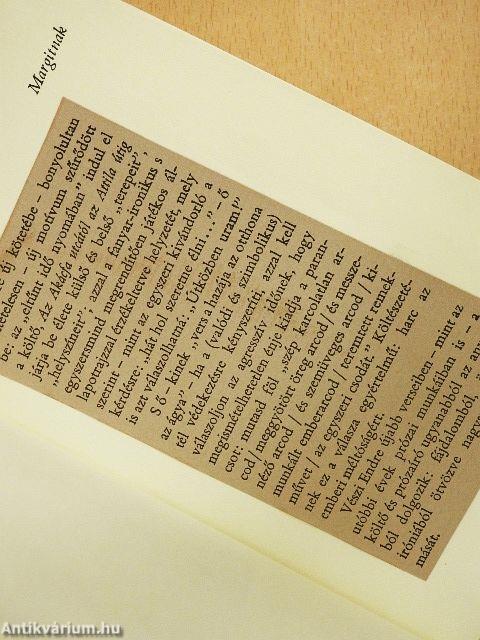 Margitnak
új kötetébe – bonyolultan
tételesen – új motívum szűrődött
be: az „elfutt idő nyomában” indul el
a költő, Az Akácfa utcától az Attila útig
járja be élete külső és belső „terepeit”,
„helyszíneit”; azzal a fanyar-ironikus s
egyszersmind megrendítően játékos ál-
laporrajzzal érzékeltetve helyzetét, mely
szerint – mint az egyszeri kivándorló a
kérdésre: „hát hol szeretne élni...” – ő
is azt válaszolhatná: „Útközben uram!”
S ő – kinek „vers a hazája az otthona
az ágya” – ha a (valódi és szimbolikus)
tél védekezésre kényszeríti, azzal kell
válaszoljon az agresszív időnek, hogy
megismételhetetlen éppé kiadja a paran-
csot: mutasd föl „szép karcoladan ar-
cod / meggyötört öreg arcod / és messze-
néző arcod / és szemüveges arcod / ki-
munkált emberarcod / teremtett remek-
művet / az egyszeri csodát.” Költészeté-
nek ez a válasza egyértelmű: harc az
emberi méltóságért.
Vészi Endre újabb verseiben – mint az
utóbbi évek prózai munkáiban is – a
költő és prózaíró ugyanabból az any
ból dolgozik: fájdalomból,
iróniából ötvözve nagy
mását.
Antikvárium.hu